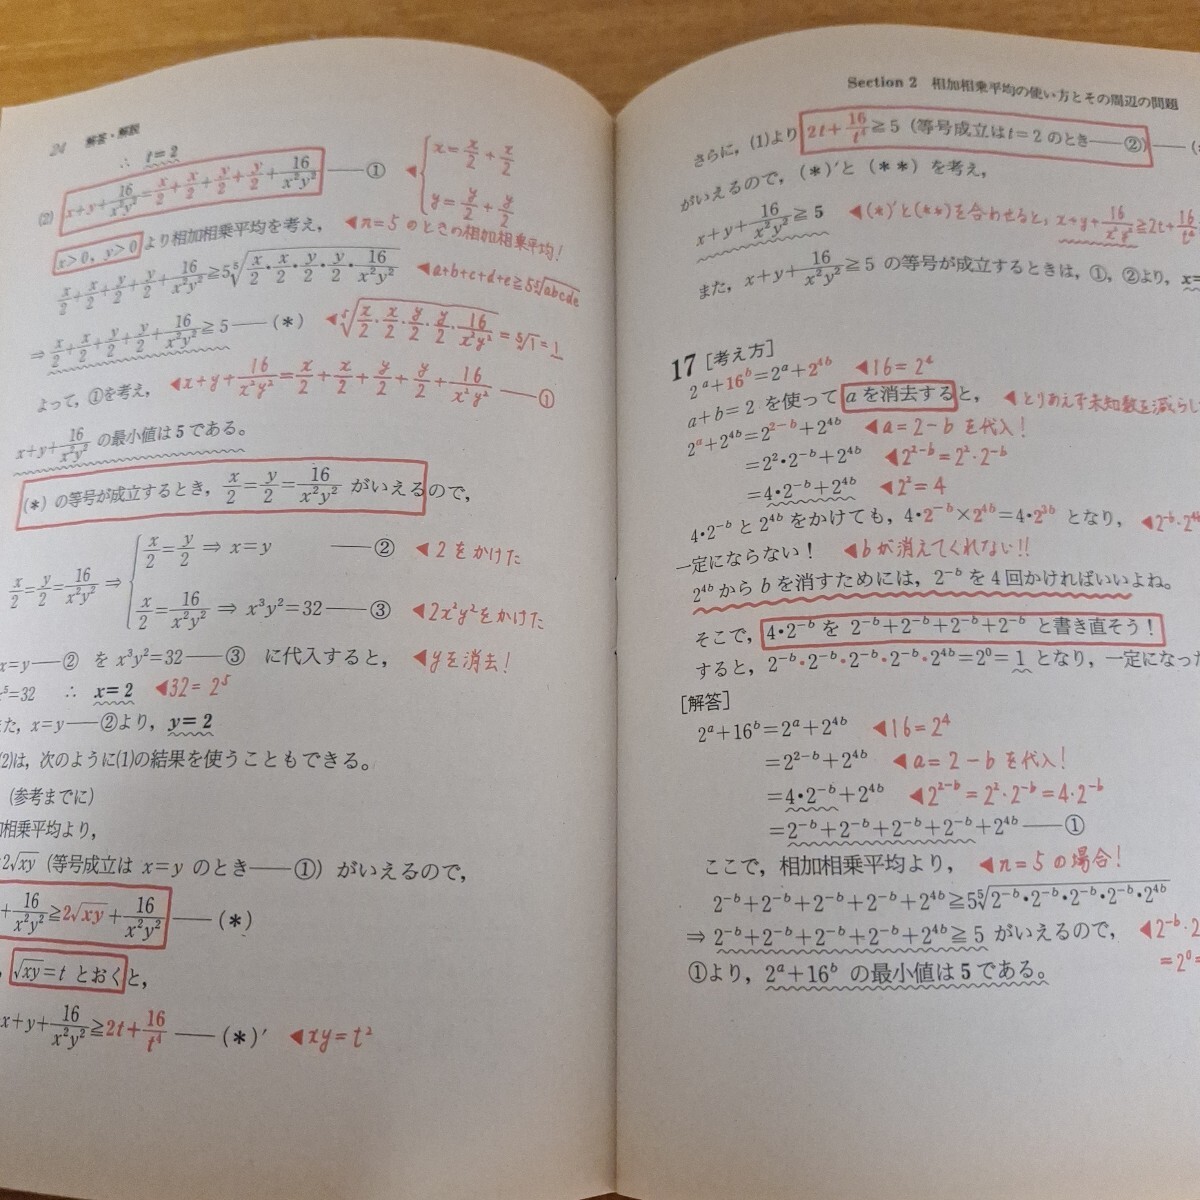 24 解答・解説
∴ t=2
(2) x+y+16/x²y²=x/2+x/2+y/2+y/2+16/x²y² ——①
◀{x=x/2+x/2
y=y/2+y/2
x>0, y>0 より相加相乗平均を考え, ◀n=5 のときの相加相乗平均!
x/2+x/2+y/2+y/2+16/x²y²≧5⁵√(x/2・x/2・y/2・y/2・16/x²y²) ◀a+b+c+d+e≧5⁵√abcde
⇒ x/2+x/2+y/2+y/2+16/x²y²≧5 ——(*) ◀⁵√(x/2・x/2・y/2・y/2・16/x²y²)=⁵√1=1
よって, ①を考え, ◀x+y+16/x²y²=x/2+x/2+y/2+y/2+16/x²y² ——①
x+y+16/x²y² の最小値は5である。
(*) の等号が成立するとき, x/2=y/2=16/x²y² がいえるので,
x/2=y/2=16/x²y² ⇒ {x/2=y/2 ⇒ x=y ——② ◀2をかけた
x/2=16/x²y² ⇒ x³y²=32 ——③ ◀2x²y²をかけた
x=y——② を x³y²=32——③ に代入すると, ◀yを消去!
x⁵=32 ∴ x=2 ◀32=2⁵
また, x=y——②より, y=2
(2)は, 次のように(1)の結果を使うこともできる。
(参考までに)
相乗平均より,
2√xy (等号成立は x=y のとき——①) がいえるので,
+16/x²y²≧2√xy+16/x²y² ——(*)
, √xy=t とおくと,
x+y+16/x²y²≧2t+16/t⁴ ——(*)′ ◀xy=t²
Section 2 相加相乗平均の使い方とその周辺の問題
さらに, (1)より 2t+16/t⁴≧5 (等号成立はt=2のとき——②)——(
がいえるので, (*)′と (**) を考え,
x+y+16/x²y²≧5 ◀(*)′と(**)を合わせると, x+y+16/x²y²≧2t+16/t
また, x+y+16/x²y²≧5 の等号が成立するときは, ①, ②より, x=
17 [考え方]
2ᵃ+16ᵇ=2ᵃ+2⁴ᵇ ◀16=2⁴
a+b=2 を使って aを消去すると, ◀とりあえず未知数を減らし
2ᵃ+2⁴ᵇ=2²⁻ᵇ+2⁴ᵇ ◀a=2-b を代入!
=2²・2⁻ᵇ+2⁴ᵇ ◀2²⁻ᵇ=2²・2⁻ᵇ
=4・2⁻ᵇ+2⁴ᵇ ◀2²=4
4・2⁻ᵇと2⁴ᵇをかけても, 4・2⁻ᵇ×2⁴ᵇ=4・2³ᵇ となり, ◀2⁻ᵇ・2⁴ᵇ
一定にならない! ◀bが消えてくれない!!
2⁴ᵇからbを消すためには, 2⁻ᵇを4回かければいいよね。
そこで, 4・2⁻ᵇを 2⁻ᵇ+2⁻ᵇ+2⁻ᵇ+2⁻ᵇ と書き直そう!
すると, 2⁻ᵇ・2⁻ᵇ・2⁻ᵇ・2⁻ᵇ・2⁴ᵇ=2⁰=1 となり, 一定になった
[解答]
2ᵃ+16ᵇ=2ᵃ+2⁴ᵇ ◀16=2⁴
=2²⁻ᵇ+2⁴ᵇ ◀a=2-b を代入!
=4・2⁻ᵇ+2⁴ᵇ ◀2²⁻ᵇ=2²・2⁻ᵇ=4・2⁻ᵇ
=2⁻ᵇ+2⁻ᵇ+2⁻ᵇ+2⁻ᵇ+2⁴ᵇ——①
ここで, 相加相乗平均より, ◀n=5の場合!
2⁻ᵇ+2⁻ᵇ+2⁻ᵇ+2⁻ᵇ+2⁴ᵇ≧5⁵√(2⁻ᵇ・2⁻ᵇ・2⁻ᵇ・2⁻ᵇ・2⁴ᵇ)
⇒ 2⁻ᵇ+2⁻ᵇ+2⁻ᵇ+2⁻ᵇ+2⁴ᵇ≧5 がいえるので, ◀2⁻ᵇ・2
=2⁰=
①より, 2ᵃ+16ᵇ の最小値は5である。